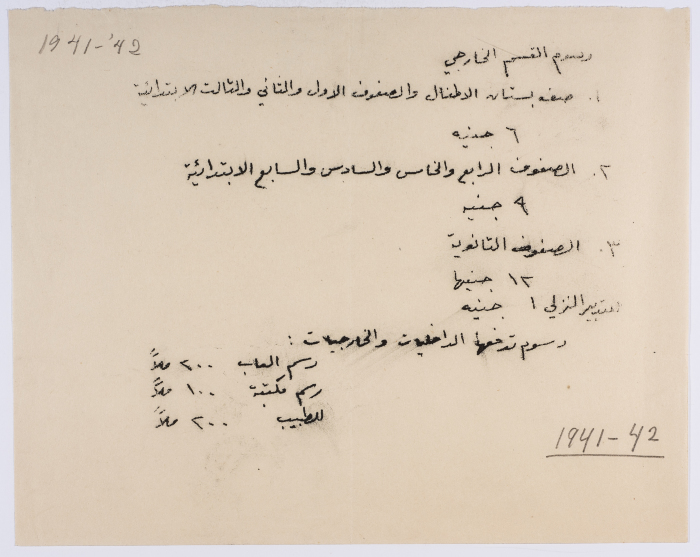 1941-'42
رسوم القسم الخارجي
١. صف بستان الاطفال والصفوف الاول والثاني والثالث الابتدائية
٦ جنيه
٢. الصفوف الرابع والخامس والسادس والسابع الابتدائية
٩ جنيه
٣. الصفوف الثانوية
١٢ جنيها
التدبير المنزلي ١ جنيه
رسوم تدفعها الداخليات والخارجيات :
رسم العاب ٢٠٠ ملاً
رسم مكتبة ١٠٠ ملاً
للطبيب ٢٠٠ ملاً
1941-42